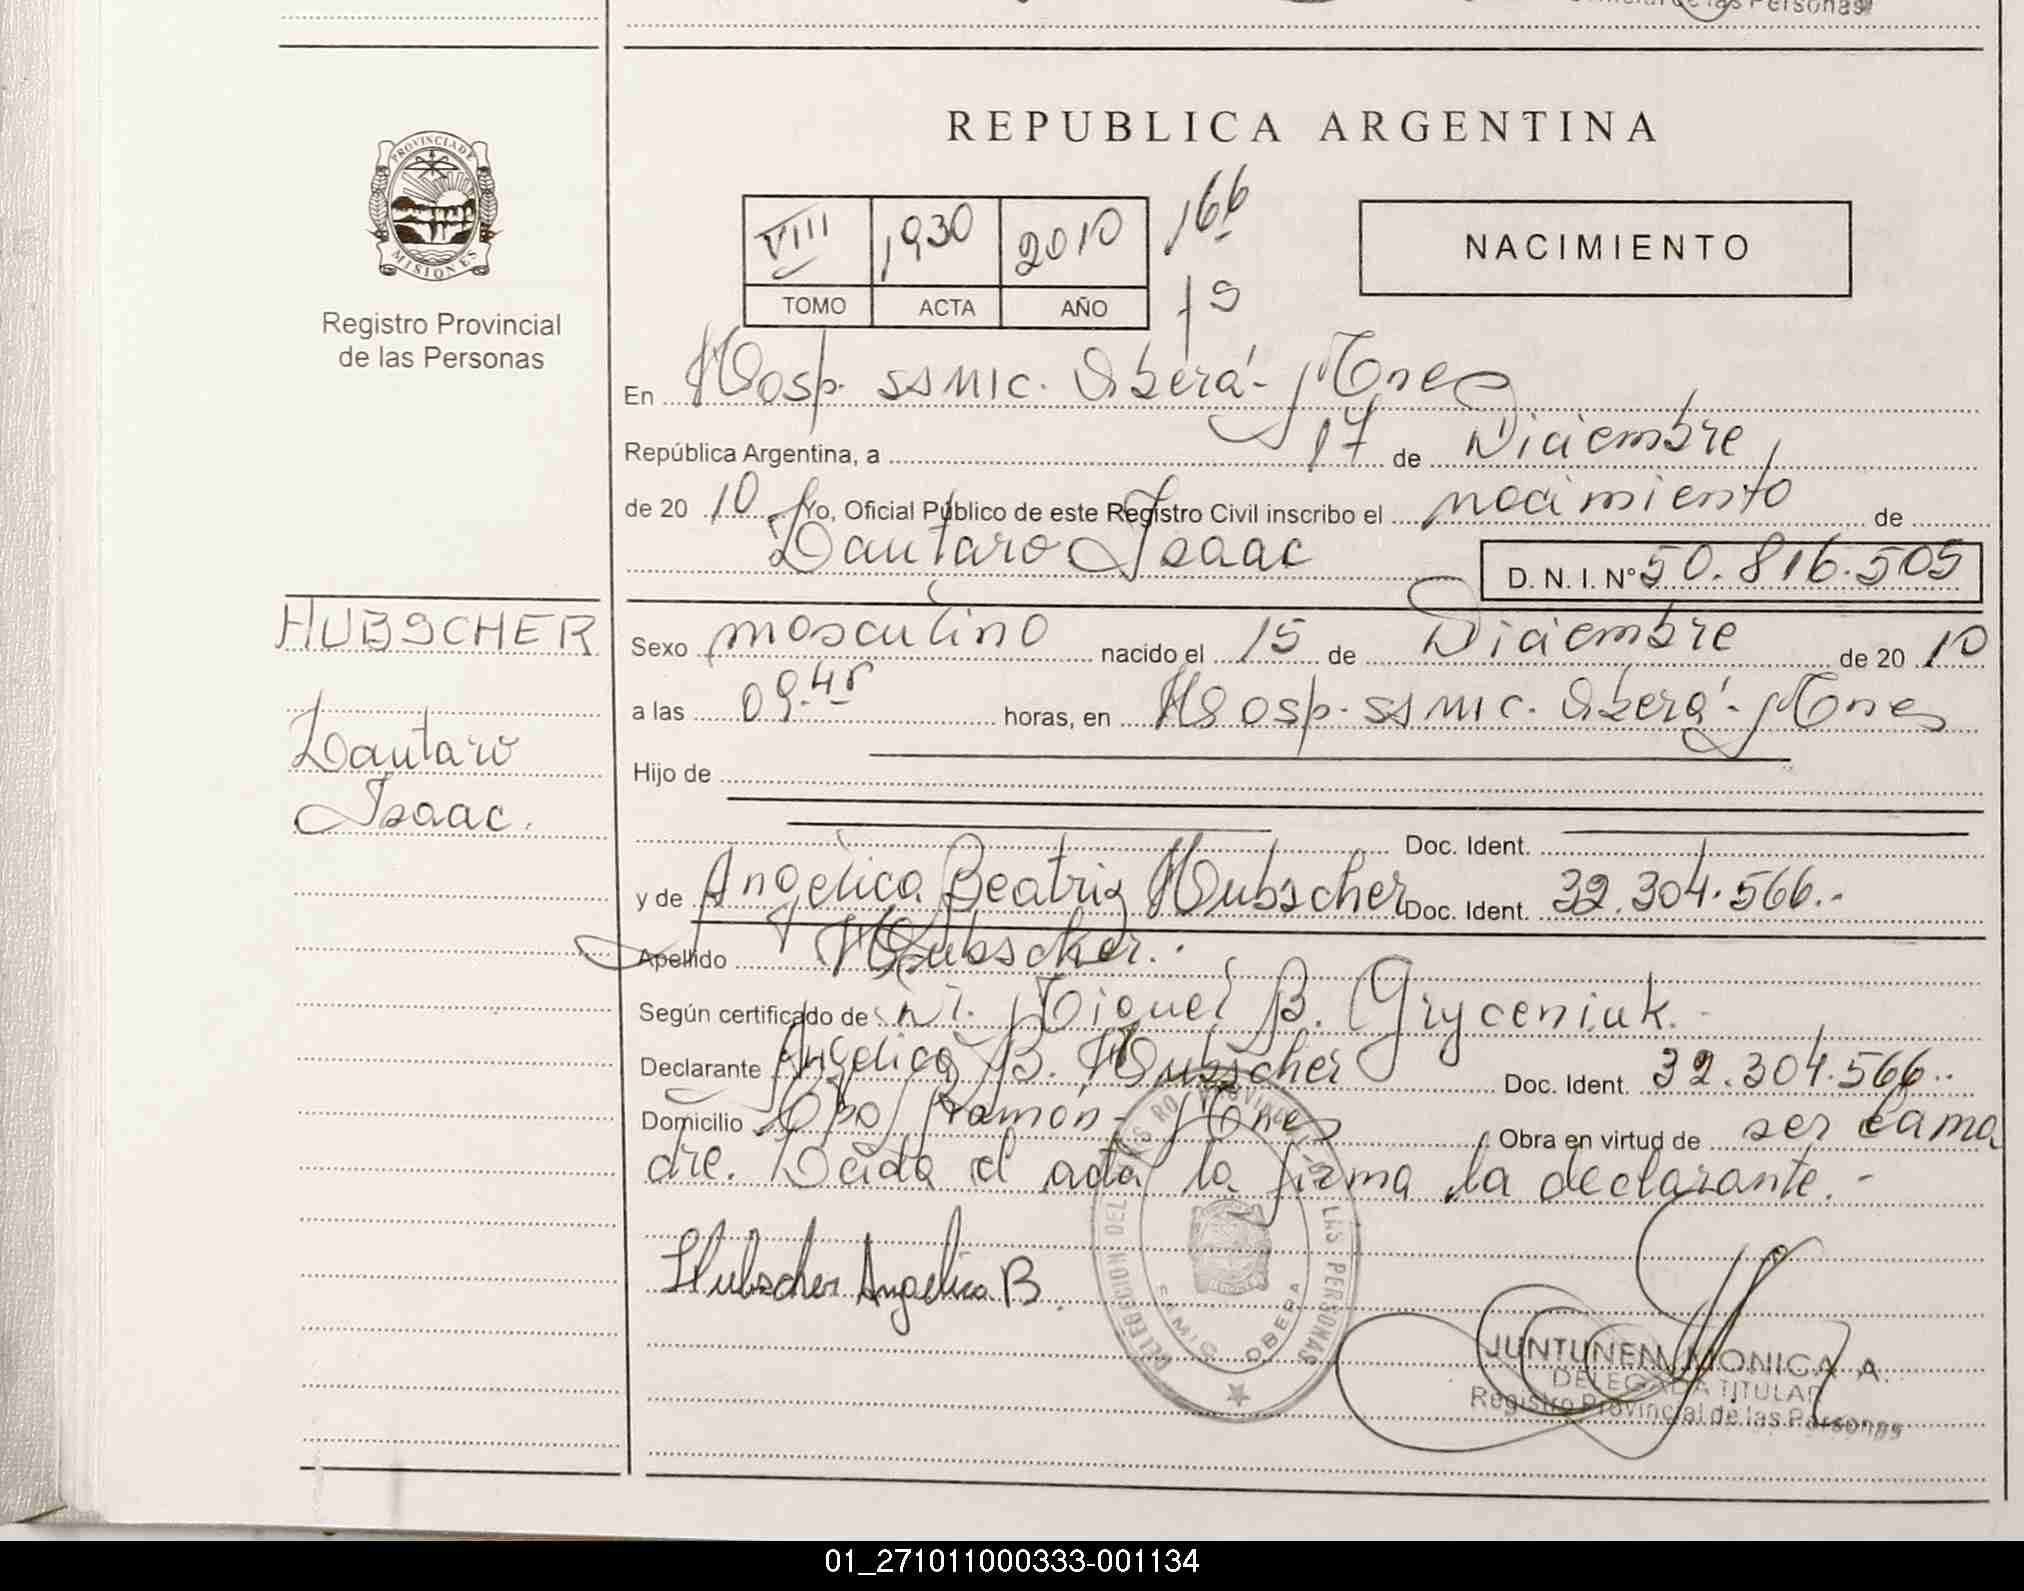 REPUBLICA ARGENTINA
PROVINCIA DE
MISIONES
Registro Provincial
de las Personas
VIII 1930 2010 166
TOMO ACTA AÑO
NACIMIENTO
En Hosp. SSMIC. Oberá - Mnes
República Argentina, a 17 de Diciembre
de 20 10 Yo, Oficial Público de este Registro Civil inscribo el nacimiento de
Lautaro Isaac D. N. I. Nº 50.816.505
HUBSCHER
Lautaro
Isaac.
Sexo masculino nacido el 15 de Diciembre de 20 10
a las 09.45 horas, en Hosp. SSMIC. Oberá - Mnes
Hijo de
Doc. Ident.
y de Angélica Beatriz Hubscher Doc. Ident. 32.304.566.-
Apellido Hubscher.
Según certificado de Dr. Miguel B. Gryceniuk.
Declarante Angélica B. Hubscher Doc. Ident. 32.304.566..
Domicilio Cpo Ramón - Mnes Obra en virtud de ser la ma
dre. Leída el acta la firma la declarante.-
Hubscher Angelica B.
DELEGACION DEL LAS PERSONAS
OBERA
JUNTUNEN MONICA A.
DELEGADA TITULAR
Registro Provincial de las Personas
01_271011000333-001134